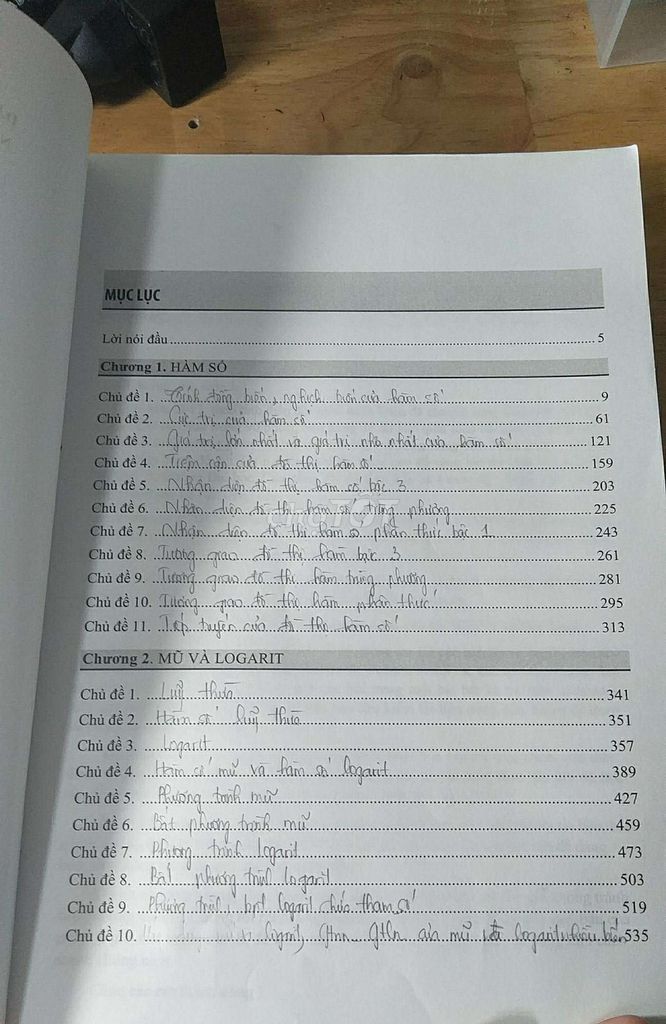 MỤC LỤC
Lời nói đầu 5
Chương 1. HÀM SỐ
Chủ đề 1. Tính đồng biến, nghịch biến của hàm số 9
Chủ đề 2. Cực trị của hàm số 61
Chủ đề 3. Giá trị lớn nhất và giá trị nhỏ nhất của hàm số 121
Chủ đề 4. Tiệm cận của đồ thị hàm số 159
Chủ đề 5. Nhận diện đồ thị hàm số bậc 3 203
Chủ đề 6. Nhận diện đồ thị hàm số trùng phương 225
Chủ đề 7. Nhận diện đồ thị hàm số phân thức bậc 1 243
Chủ đề 8. Tương giao đồ thị hàm bậc 3 261
Chủ đề 9. Tương giao đồ thị hàm trùng phương 281
Chủ đề 10. Tương giao đồ thị hàm phân thức 295
Chủ đề 11. Tiếp tuyến của đồ thị hàm số 313
Chương 2. MŨ VÀ LOGARIT
Chủ đề 1. Luỹ thừa 341
Chủ đề 2. Hàm số luỹ thừa 351
Chủ đề 3. Logarit 357
Chủ đề 4. Hàm số mũ và hàm số logarit 389
Chủ đề 5. Phương trình mũ 427
Chủ đề 6. Bất phương trình mũ 459
Chủ đề 7. Phương trình logarit 473
Chủ đề 8. Bất phương trình logarit 503
Chủ đề 9. Phương trình, bpt logarit chứa tham số 519
Chủ đề 10. logarit, gtnn gtln của mũ và logarit nhiều biến 535